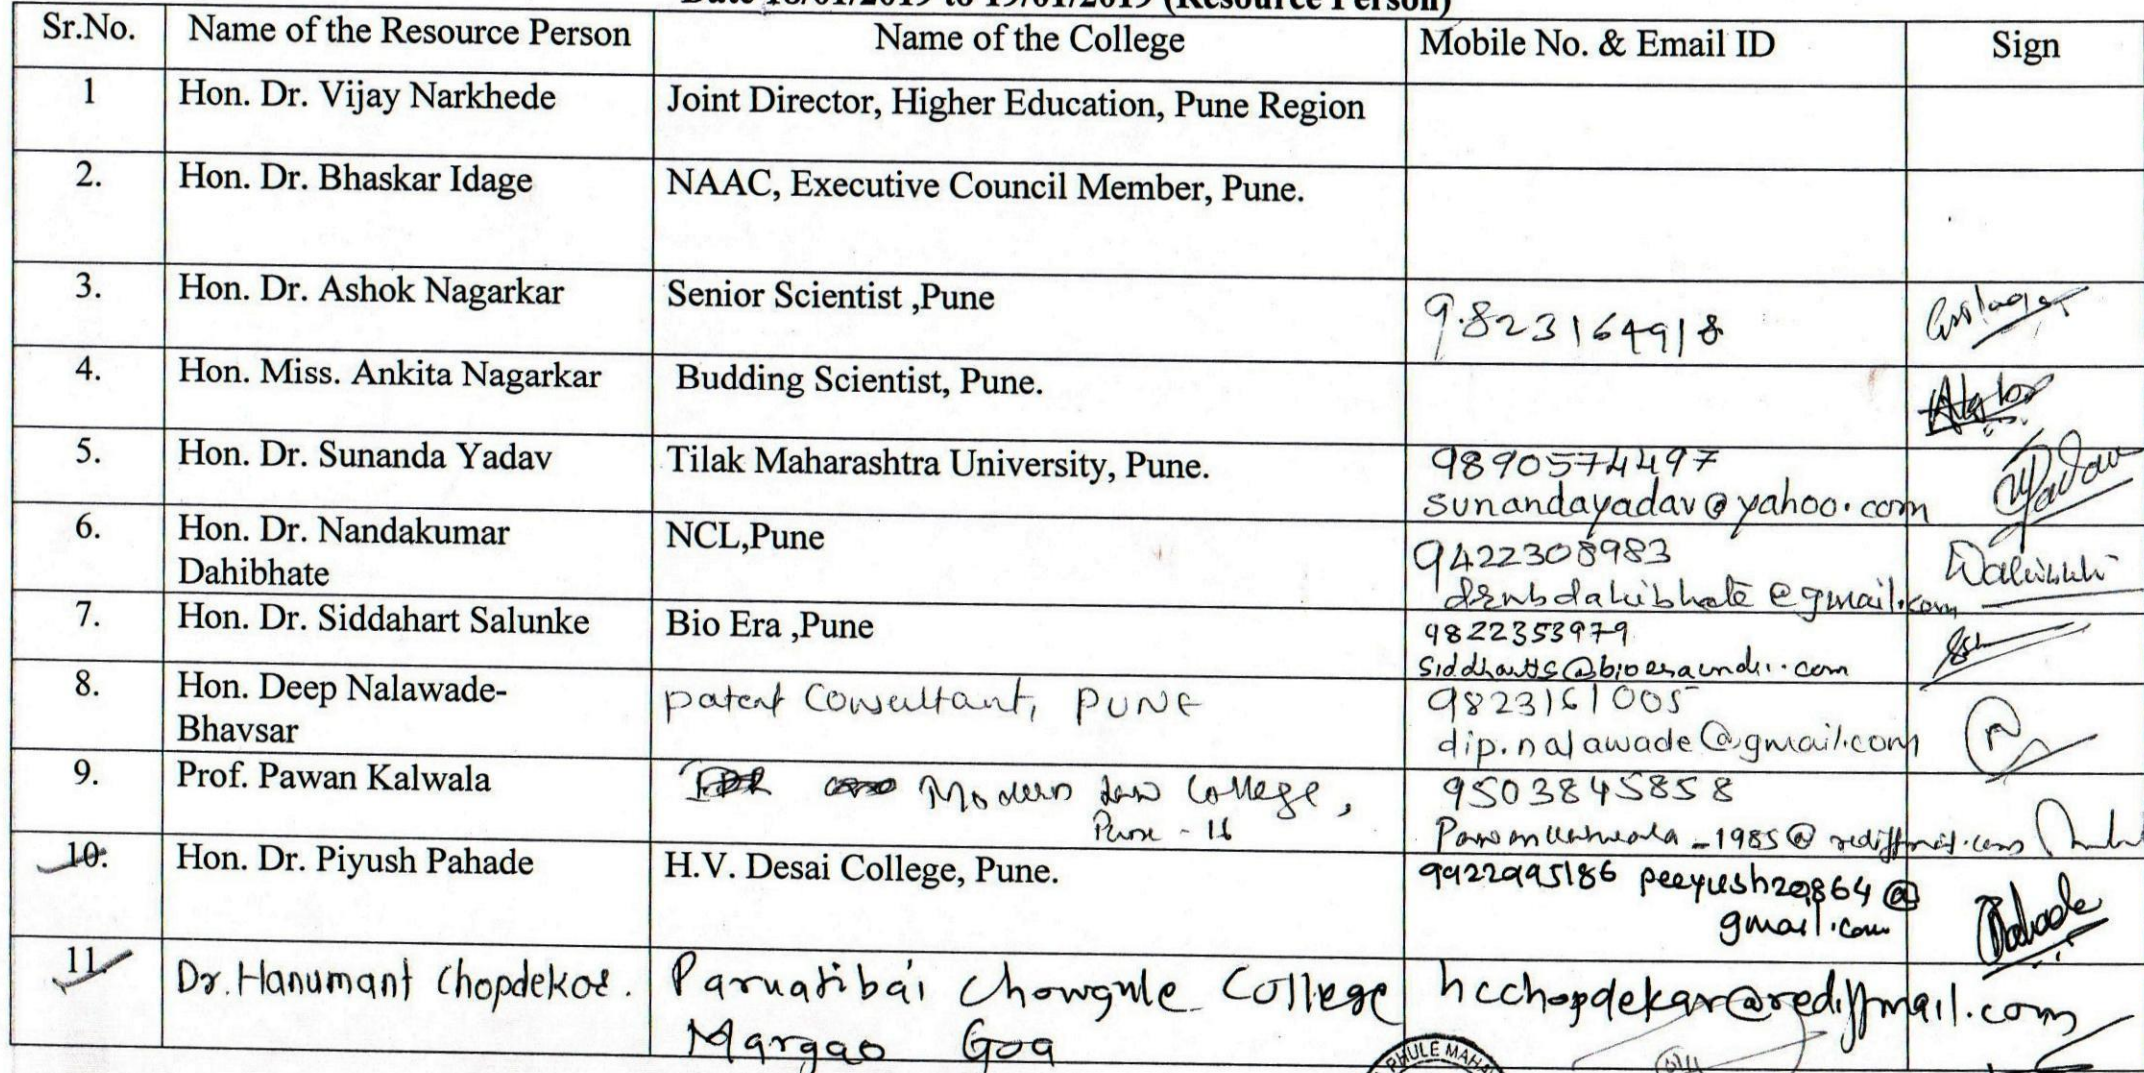 Date 18/01/2019 to 19/01/2019 (Resource Person)
Sr.No. Name of the Resource Person Name of the College Mobile No. & Email ID Sign
1 Hon. Dr. Vijay Narkhede Joint Director, Higher Education, Pune Region
2. Hon. Dr. Bhaskar Idage NAAC, Executive Council Member, Pune.
3. Hon. Dr. Ashok Nagarkar Senior Scientist ,Pune 9.823164918
4. Hon. Miss. Ankita Nagarkar Budding Scientist, Pune.
5. Hon. Dr. Sunanda Yadav Tilak Maharashtra University, Pune. 9890574497
sunandayadav@yahoo.com
6. Hon. Dr. Nandakumar NCL,Pune 9422308983
Dahibhate drnbdahibhate@gmail.com
7. Hon. Dr. Siddahart Salunke Bio Era ,Pune 9822353979
8. Hon. Deep Nalawade- patent Consultant, PUNE 9823161005
Bhavsar dip.nalawade@gmail.com
9. Prof. Pawan Kalwala Modern Law College, 9503845858
Pune - 16
10. Hon. Dr. Piyush Pahade H.V. Desai College, Pune. 9922995186 peeyush20864@
gmail.com
11. Dr. Hanumant Chopdekar. Parvatibai Chowgule College hcchopdekar@rediffmail.com
Margao Goa
PHULE MAHA